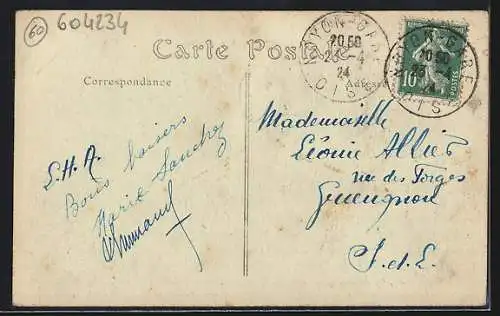 60
604234
Carte Postale
NOYON-GARE
20 50
4
24
OISE
NOYON-GARE
20 50
24
OISE
10
POSTES
Correspondance
Adresse
S.H.A.
Bons baisers
Marie Sanchez
Mademoiselle
Léonie Allier
rue des Forges
Gueugnon
S. et L.